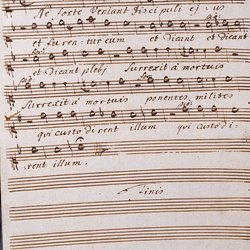 Ne forte Veniant Discipuli ejus
et furentur eum et Dicant et Dicant
et Dicant plebi Surrexit â mortuis
Surrexit â mortuis ponentes milites
qui custodirent illum qui custodi=
rent illum.
Finis